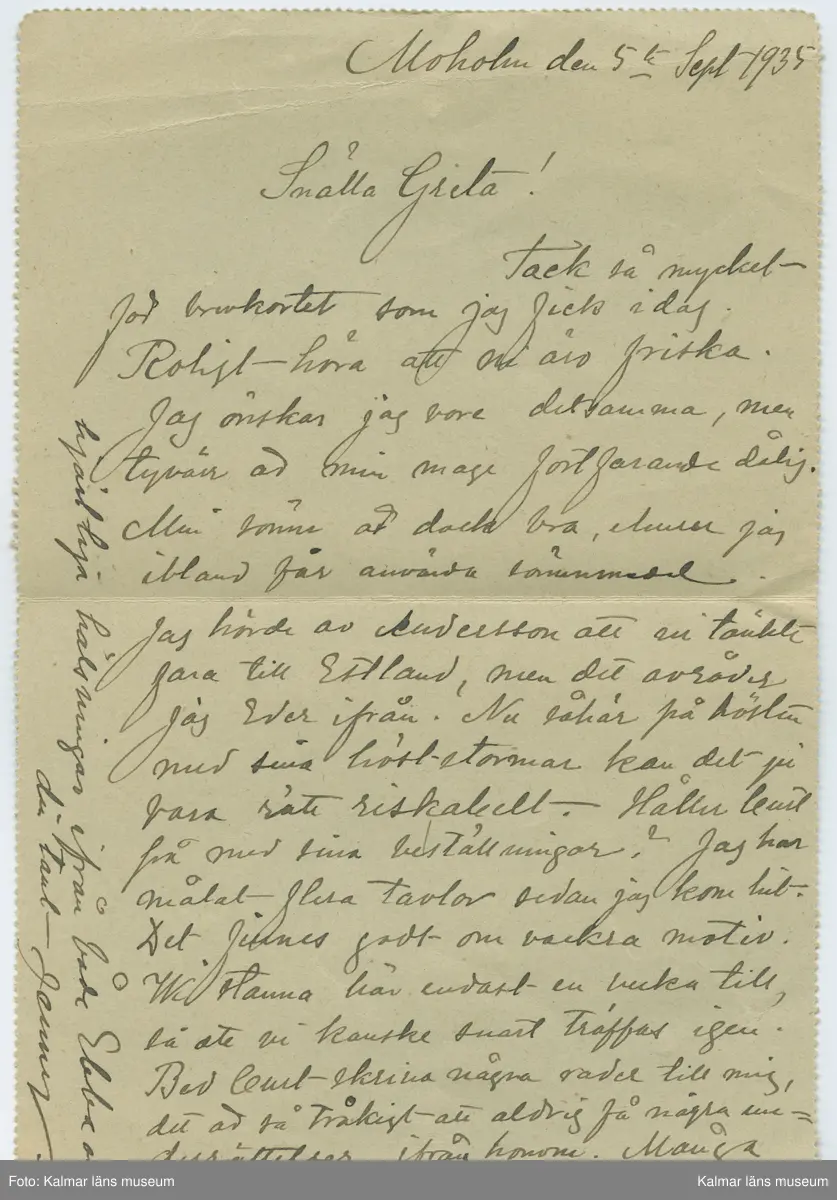 Moholm den 5te Sept 1935
Snälla Greta!
Tack så mycket
för brevkortet som jag fick idag.
Roligt höra att ni äro friska.
Jag önskar jag vore detsamma, men
tyvärr är min mage fortfarande dålig.
Min sömn är dock bra, ehuru jag
ibland får använda sömnmedel.
Jag hörde av Andersson att ni tänkte
fara till Estland, men det avråder
jag Eder ifrån. Nu såhär på hösten
med sina höst-stormar kan det ju
vara rätt riskabelt. Håller Curt
på med sina beställningar? Jag har
målat flera tavlor sedan jag kom hit.
Det finnes godt om vackra motiv.
Wi stanna här endast en vecka till,
så att vi kanske snart träffas igen.
Bed Curt skriva några rader till mig,
det är så tråkigt att aldrig få några un=
derrättelser ifrån honom. Många
hjärtliga hälsningar ifrån både Ebba o
din tant
Foto: Kalmar läns museum
Kalmar läns museum